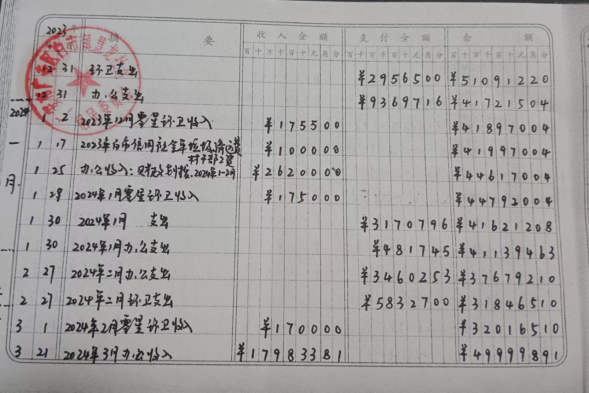 2023 摘 要 收入金额 支付金额 余 额
百十万千百十元角分 百十万千百十元角分 百十万千百十元角分
12 31 环卫支出 ¥2956500 ¥51091220
12 31 办公支出 ¥9369716 ¥41721504
2024 1 2 2023年12月零星环卫收入 ¥175500 ¥41897004
1 17 2023年 ¥100000 ¥41997004
1 25 办公收入: 2024年1-2月 ¥2620000 ¥44617004
1 29 2024年1月零星环卫收入 ¥175000 ¥44792004
1 30 2024年1月 支出 ¥3170796 ¥41621208
1 30 2024年1月办公支出 ¥481745 ¥41139463
2 27 2024年二月办公支出 ¥3460253 ¥37679210
2 27 2024年二月环卫支出 ¥5832700 ¥31846510
3 1 2024年2月零星环卫收入 ¥170000 ¥32016510
3 21 2024年3月办公收入 ¥17983381 ¥49999891